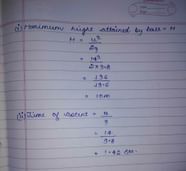 (i) Maximum hight attained by ball = H
H = u²
2g
= 14²
2×9.8
= 196
19.6
= 10m
(ii) Time of ascent = u
g
= 14
9.8
= 1.42 sec.